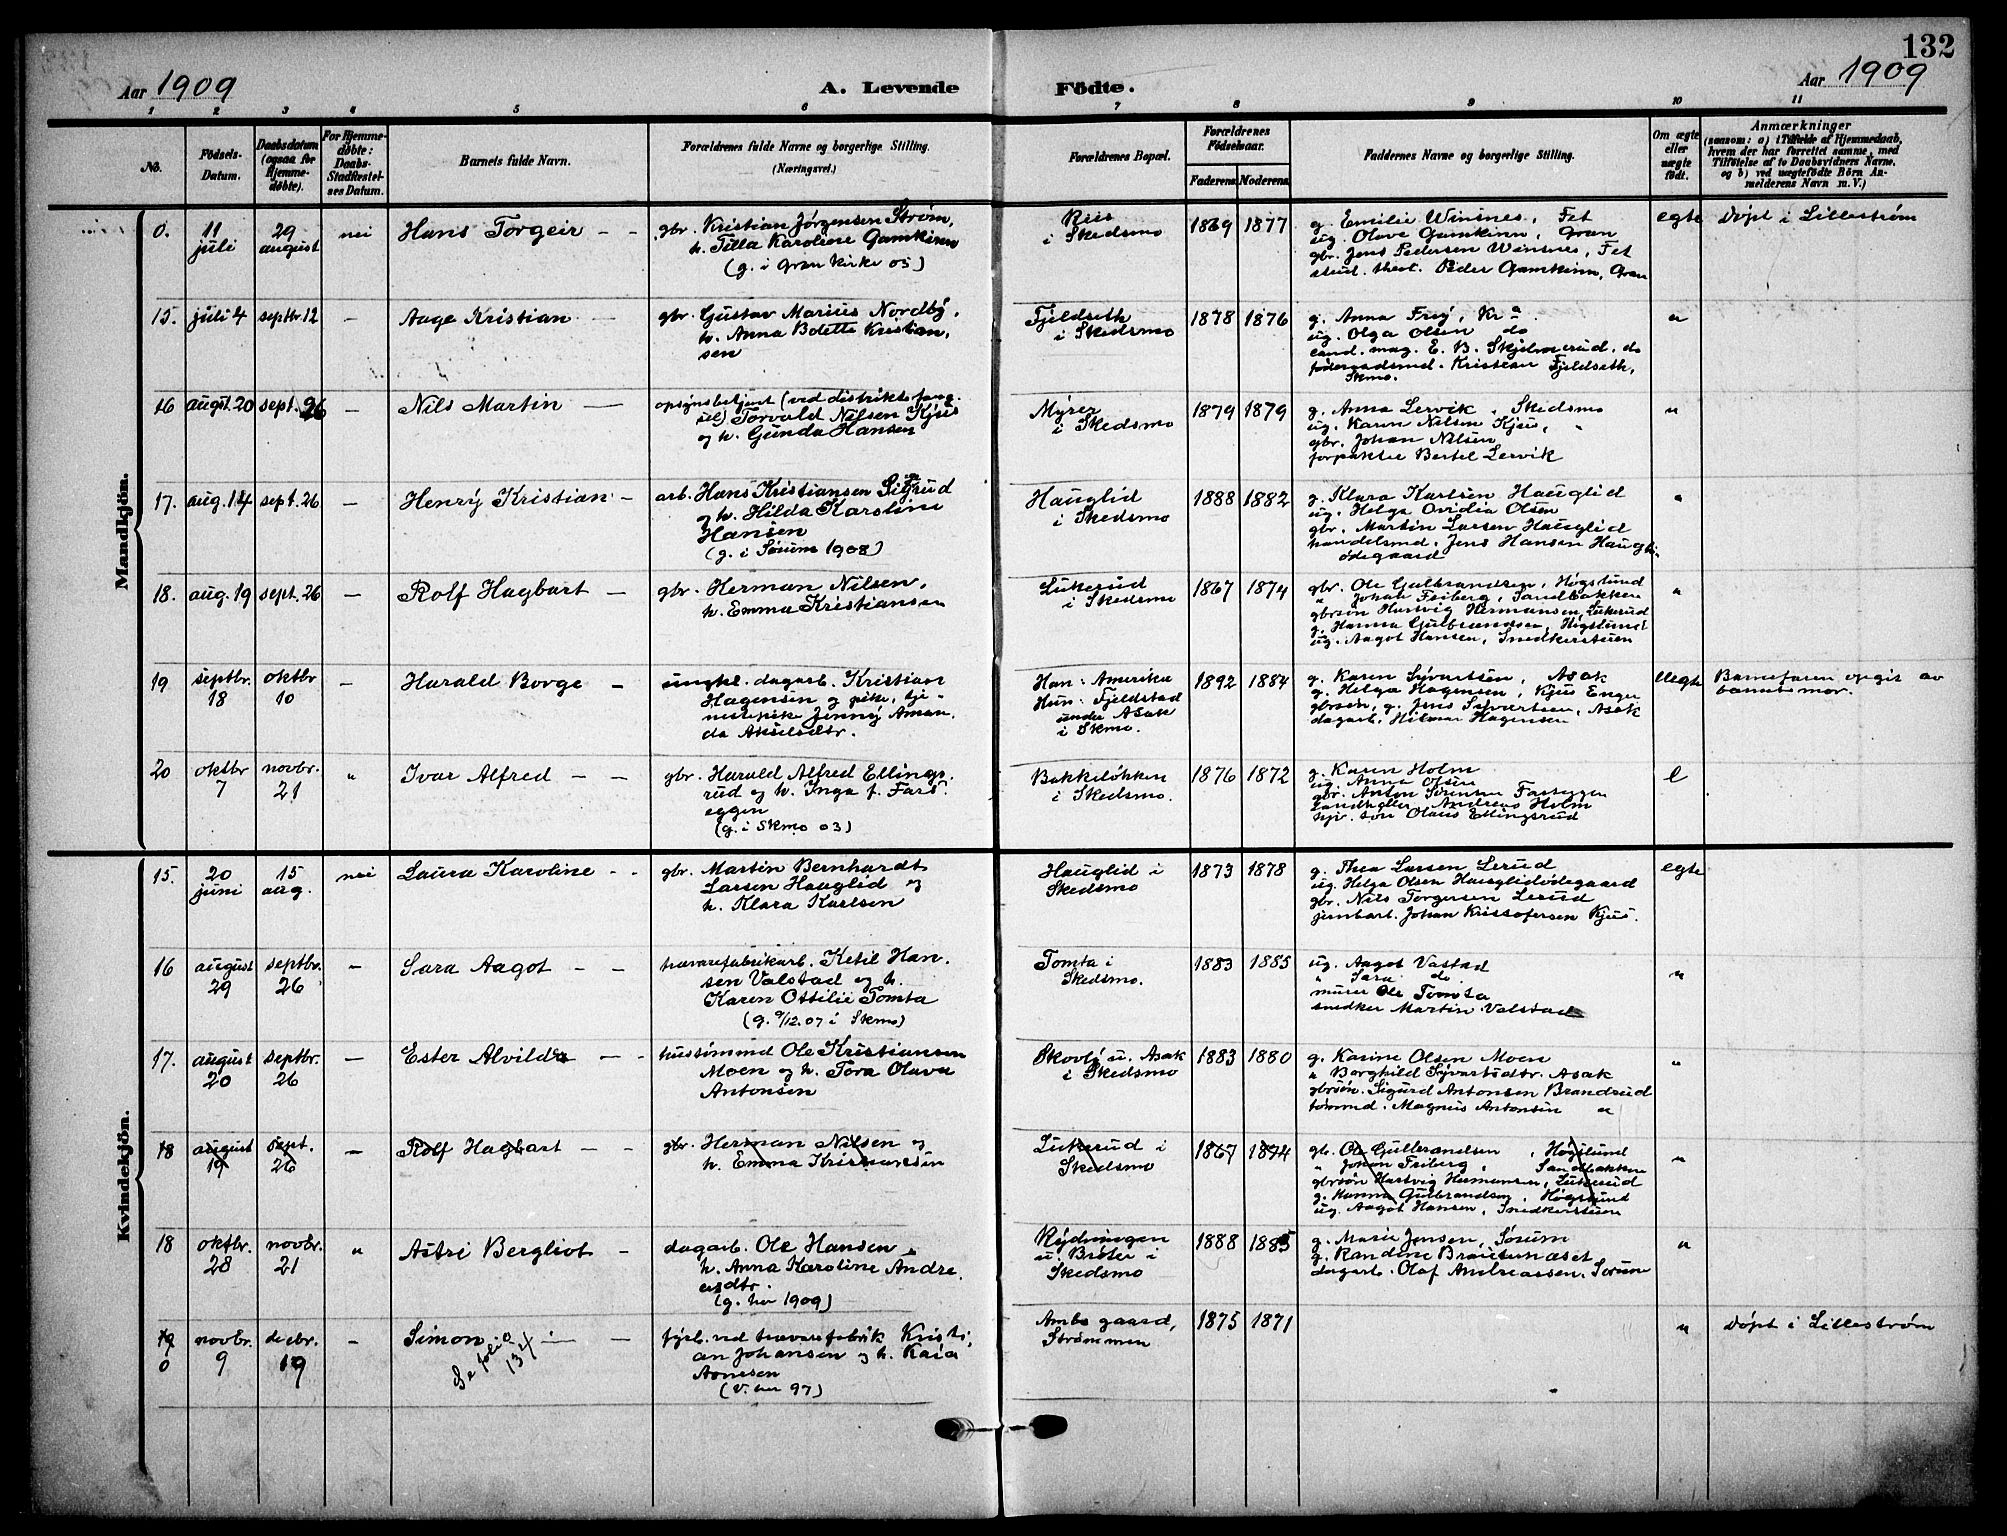 132
Aar 1909
A. Levende Födte.
Aar 1909
1 2 3 4 5 6 7 8 9 10 11
No.
Födsels-
Datum.
Daabsdatum
(ogsaa for
Hjemme-
döbte).
For Hjemme-
döbte:
Daabs-
Stadfæstel-
ses Datum.
Barnets fulde Navn.
Forældrenes fulde Navne og borgerlige Stilling.
(Næringsvei.)
Forældrenes Bopæl.
Forældrenes
Födselsaar.
Faderens. Moderens.
Faddernes Navne og borgerlige Stilling.
Om ægte
eller
uægte
födt.
Anmærkninger
(saasom: a) i Tilfælde af Hjemmedaab,
hvem der har forrettet samme, med
Tilföielse af to Daabsvidners Navne,
og b) ved uægtefödte Börn An-
melderens Navn m. V.)
Mandkjön.
0. 11 juli 29 august nei Hans Torgeir - -
gbr. Kristian Jørgensen Strøm,
h. Tilla Karoline Gamkinn
(g. i Gran kirke 05)
Riis
i Skedsmo
1869 1877
g. Emilie Winsnes, Fet
ug. Olave Gamkinn, Gran
gbr. Jens Pedersen Winsnes, Fet
stud. theol. Peder Gamkinn, Gran
egte
Døpt i Lillestrøm
15. juli 4 septbr 12 - Aage Kristian -
gbr. Gustav Marius Nordby,
h. Anna Bolette Kristian,
sen
Fjeldseth
i Skedsmo
1878 1876
g. Anna Frey, Kra
ug. Olga Olsen do
cand. mag. E. B. Skjelmerud. do
føderaadsmd. Kristian Fjeldseth,
Skmo.
"
16 august. 20 sept. 26 - Nils Martin -
opsynsbetjent (ved distriktsfæng-
sel) Torvald Nilsen Kjus
og h. Gunda Hansen
Myrer
i Skedsmo
1879 1879
g. Anna Lervik, Skedsmo
ug. Karen Nilsen Kjus, "
gbr. Johan Nilsen
forpakter Bertel Lervik
"
17. aug. 14 sept. 26 - Henry Kristian -
arb. Hans Kristiansen Sigrud
og h. Hilda Karoline
Hansen
(g. i Sørum 1908)
Hauglid
i Skedsmo
1888 1882
g. Klara Karlsen Hauglid
ug. Helga Ovidia Olsen
gbr. Martin Larsen Hauglid
handelsmd. Jens Hansen Haugli-
ødegaard
"
18. aug. 19 sept. 26 - Rolf Hagbart -
gbr. Herman Nilsen,
h. Emma Kristiansen
Lukerud
i Skedsmo
1867 1874
gbr. Ole Gulbrandsen, Høgslund
" Johan Friberg, Sandbakken
gbrsøn Hartvig Hermansen, Lukerud
g. Hanna Gulbrandsen, Høgslund
ug. Aagot Hansen, Snedkerstuen
"
19 septbr. 18 oktbr 10 - Harald Borge -
ungkl. dagarb. Kristian
Hagensen og pike, tje-
nestepike Jenny Aman,
da Akselsdtr.
Han: Amerika
Hun: Fjeldstad
under Asak
i Skmo.
1892 1884
g. Karen Syvertsen, Asak
g. Helga Hagensen, Kjus Enger
gbrsøn, g. Jens Syvertsen, Asak
dagarb. Hilmar Hagensen
uegte
Barnefaren opgit av
barnets mor.
20 oktbr 7 novbr. 21 " Ivar Alfred - -
gbr. Harald Alfred Ellings,
rud og h. Inga f. Fars
eggen
(g. i Skmo 03)
Bekkeløkken
i Skedsmo.
1876 1872
g. Karen Holm
ug. Anna Olsen
gbr. Anton Sørensen Farseggen
Landhdler Andreas Holm
gbr. søn Olaus Ellingsrud
e
Kvindekjön.
15. 20 juni 15 aug. nei Laura Karoline - -
gbr. Martin Bernhardt
Larsen Hauglid og
h. Klara Karlsen
Hauglid i
Skedsmo
1873 1878
g. Thea Larsen Lerud
ug. Helga Olsen Hauglidødegaard
gbr. Nils Torgersen Lerud
jernbarb. Johan Kristofersen Kjus.
egte
16 august 29 septbr. 26 - Sara Aagot - -
trævarefabrikarb. Ketil Han-
sen Valstad og h.
Karen Ottilie Tomta
(g. 9/12. 07 i Skmo)
Tomta i
Skedsmo.
1883 1885
ug. Aagot Vastad
" Sara do
murer Ole Tomta
snedker Martin Valstad
"
17. august 20 septbr. 26 - Ester Alvilda - -
hustømmd Ole Kristiansen
Moen og h. Tora Olava
Antonsen
Skovly u. Asak
i Skedsmo
1883 1880
g. Karine Olsen Moen
" Borghild Syverstsdtr. Asak
gbrsøn. Sigurd Antonsen Brandsrud
tømmd. Magnus Antonsen "
"
18 august 19 sept. 26 - Rolf Hagbart - -
gbr. Herman Nilsen og
h. Emma Kristiansen
Lukerud i
Skedsmo
1867 1874
gb. Ole Gulbrandsen, Høgslund
" Johan Friberg, Sandbakken
gbrsøn Hartvig Hermansen, Lukerud
g. Hanna Gulbrandsen, Høgslund
ug. Aagot Hansen, Snedkerstuen
"
18 oktbr. 28 novbr. 21 " Astri Bergliot -
dagarb. Ole Hansen,
h. Anna Karoline Andre,
asdtr.
(g. her 1909)
Rydningen
u. Brøter i
Skedsmo
1888 1885
g. Marie Jensen, Sørum
g. Randine Braatenæset
dagarb. Olaf Andreassen, Sørum
"
19 0 novbr. 9 decbr. 19 - Simon - -
Se folio 134
fyrb. ved trævarefabrik Kristi,
an Johansen og h. Kaia
Arnesen
(v. her 97)
Ambs gaard,
Strømmen
1875 1871
"
Døpt i Lillestrøm